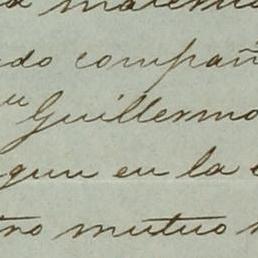 a materia
do compañ
Guillermo
gun en la
tro mutuo